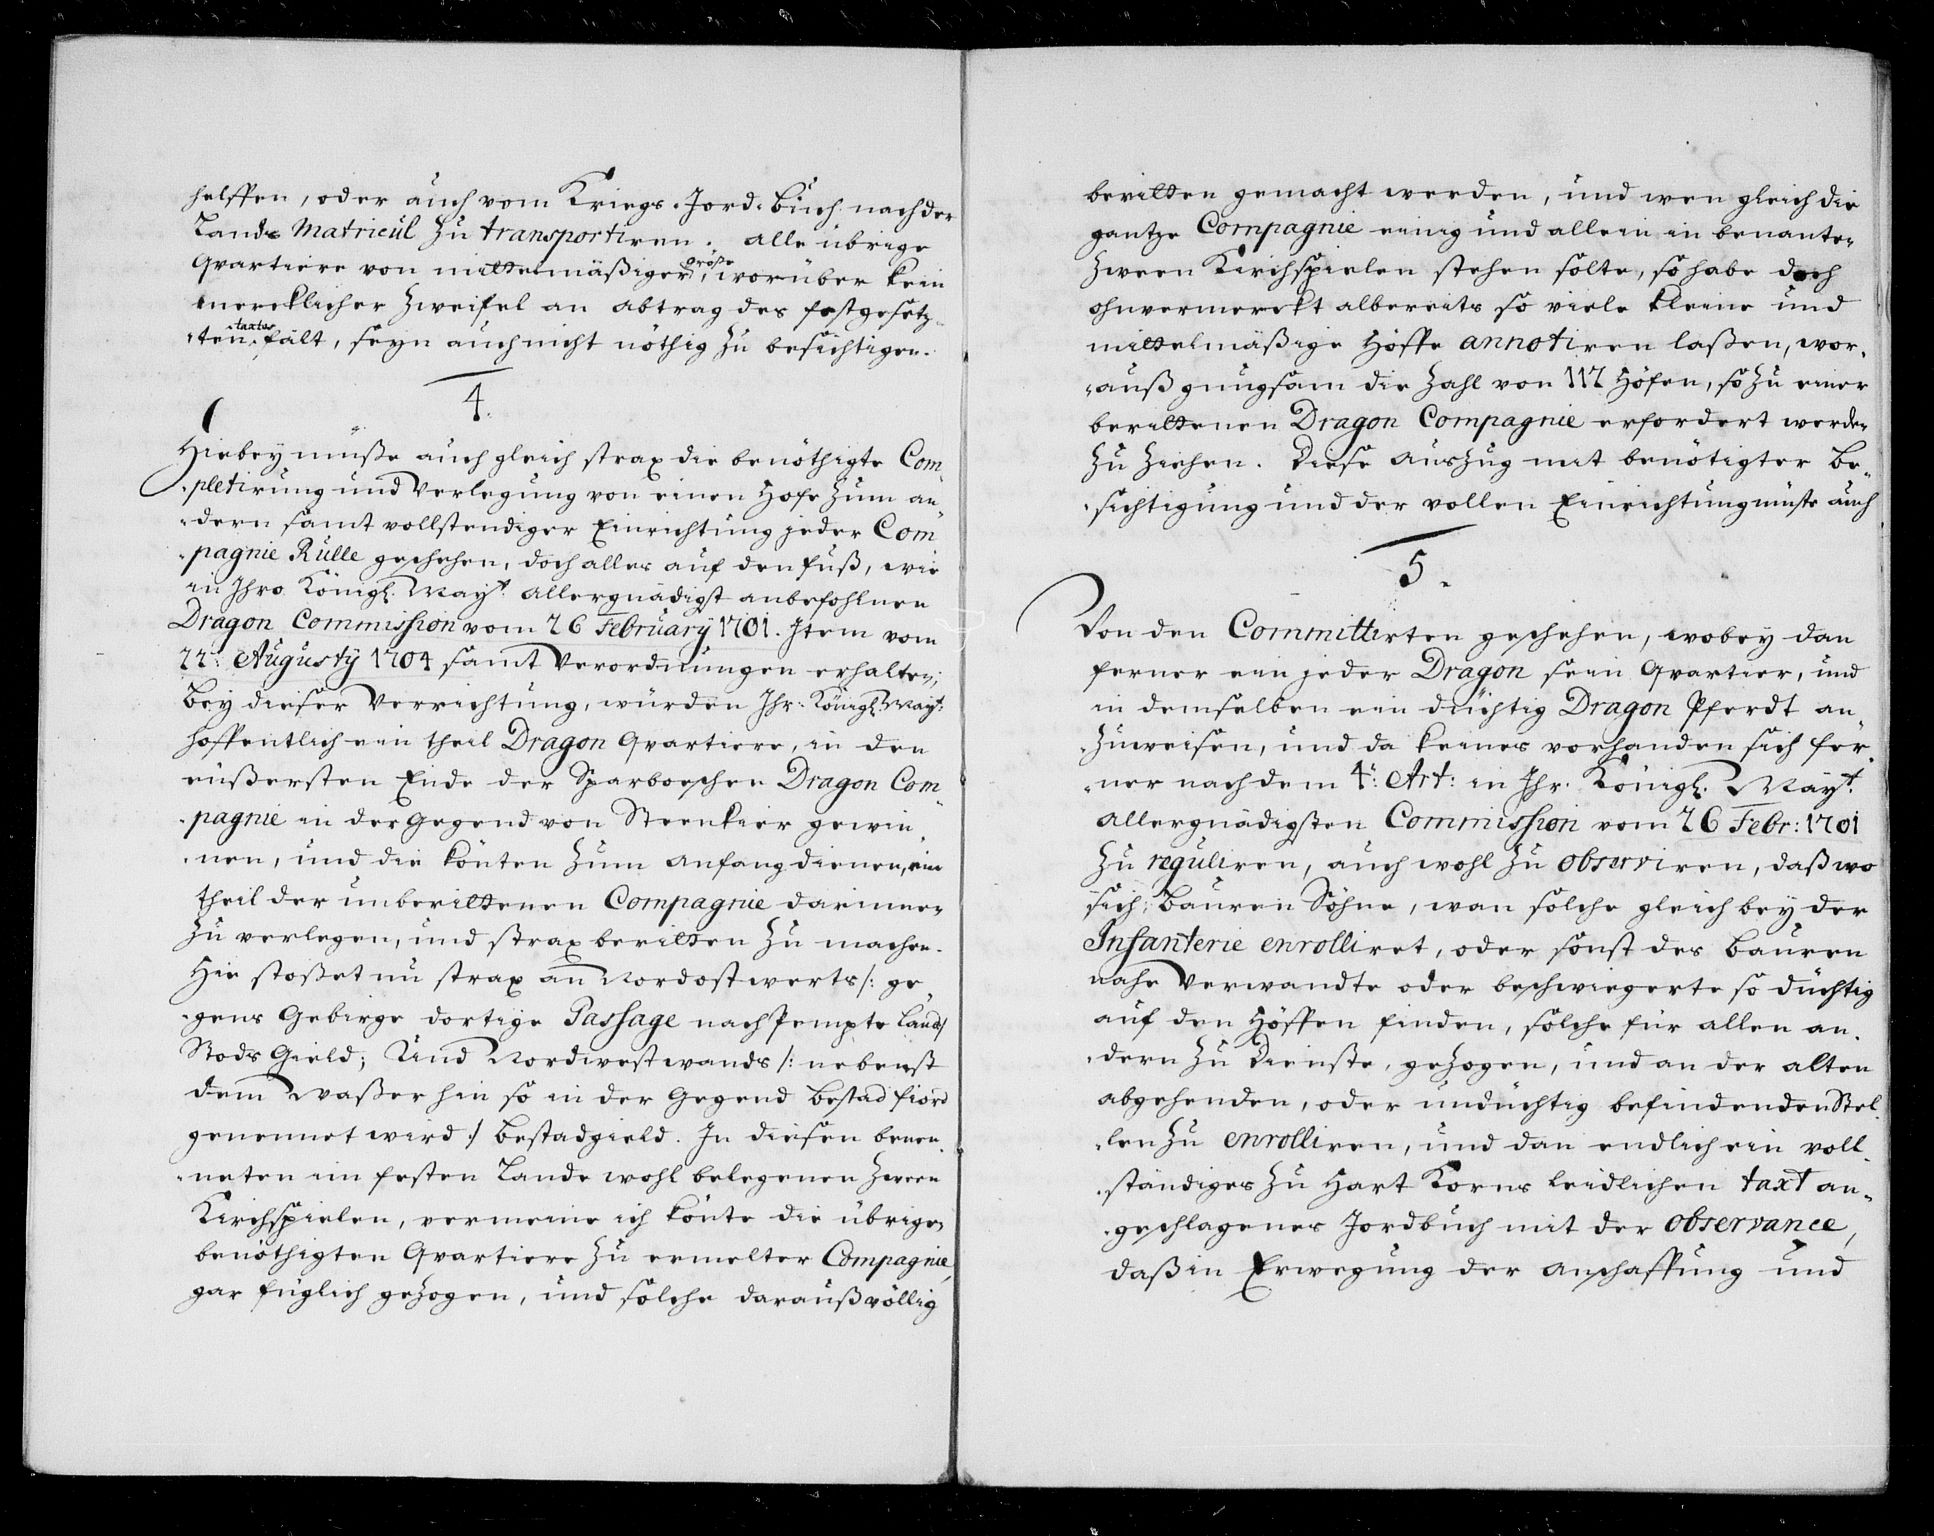 helffen, oder auch vom Kriegs-Jord-Buch nach der
Lands Matricul zu transportiren. alle übrige
Qvartiere von mittelmäßiger größe, worüber kein
mercklicher Zweifel an abtrag des festgesetz-
-ten taxtes fält, seyn auch nicht nöthig zu besichtigen.
4.
Hiebey müße auch gleich strax die benöthigte Com
-pletirung und Verlegung von einen Hofe zum an
-dern samt vollstendiger Einrichtung jeder Com
-pagnie Rulle geschehen, doch alles auf den fuß, wie
in Ihro Königl. Mayt. allergnädigst anbefohlnen
Dragon Commission vom 26 February 1701. Item vom
22: Augusty 1704 samt Verordnungen erhalten;
Bey dieser Verrichtung, würden Ihr: Königl: Mayt:
hoffentlich ein theil Dragon Qvartiere, in den
eüßersten Ende der Sparboeschen Dragon Com
-pagnie in der Gegend von Steenkier gewin
-nen, und die könten zum anfang dienen, ein
theil der unberittenen Compagnie darinnen
zu verlegen, und strax beritten zu machen.
Hie stoßet nu strax an Nordostwerts /: ge
-gens Gebirge dortige Passage nach Jempte land /
Stods Gield; Und Nordwestwands /: nebenst
dem Waßer hin so in der Gegend Bestad fiord
genennet wird :/ Bestadgield. In diesen benen
-neten im festen Lande wohl belegenen zween
Kirchspielen, vermeine ich könte die übrigen
benöthigten Qvartiere zu ermelter Compagnie,
gar füglich gezogen, und solche darauß völlig
beritten gemacht werden, und wen gleich die
gantze Compagnie einig und allein in benanten
zween Kirchspielen stehen solte, so habe doch
ohnvermerckt albereits so viele kleine und
mittelmäßige Höffe annotiren laßen, wor-
-auß gnugsam die Zahl von 117 Höfen, so zu einer
berittenen Dragon Compagnie erfordert werden
zu ziehen. Diese auszug mit benötigter Be-
-sichtigung und der vollen Einrichtung müste auch
5.
Von den Committirten geschehen, wobey dan
ferner ein jeder Dragon sein Qvartier, und
in demselben ein düchtig Dragon Pferdt an
-zuweisen, und da keines vorhanden sich fer
-ner nach dem 4: Art: in Ihr. Königl. Mayt.
allergnädigsten Commission vom 26 Febr: 1701
zu reguliren, auch wohl zu observiren, daß wo
sich: Bauren Söhne, wan solche gleich bey der
Infanterie enrolliret, oder sonst des Bauren
nahe Verwandte oder beschwiegerte so düchtig
auf den Höffen finden, solche für allen an-
-dern zu Dienste, gezogen, und an der alten
abgehenden, oder undüchtig befindenden Stel
-len zu enrolliren, und dan endlich ein voll-
-ständiges zu Hart Korns leidlichen taxt an-
-geschlagenes Jordbuch mit der observance,
daß in Erwegung der anschaffung und